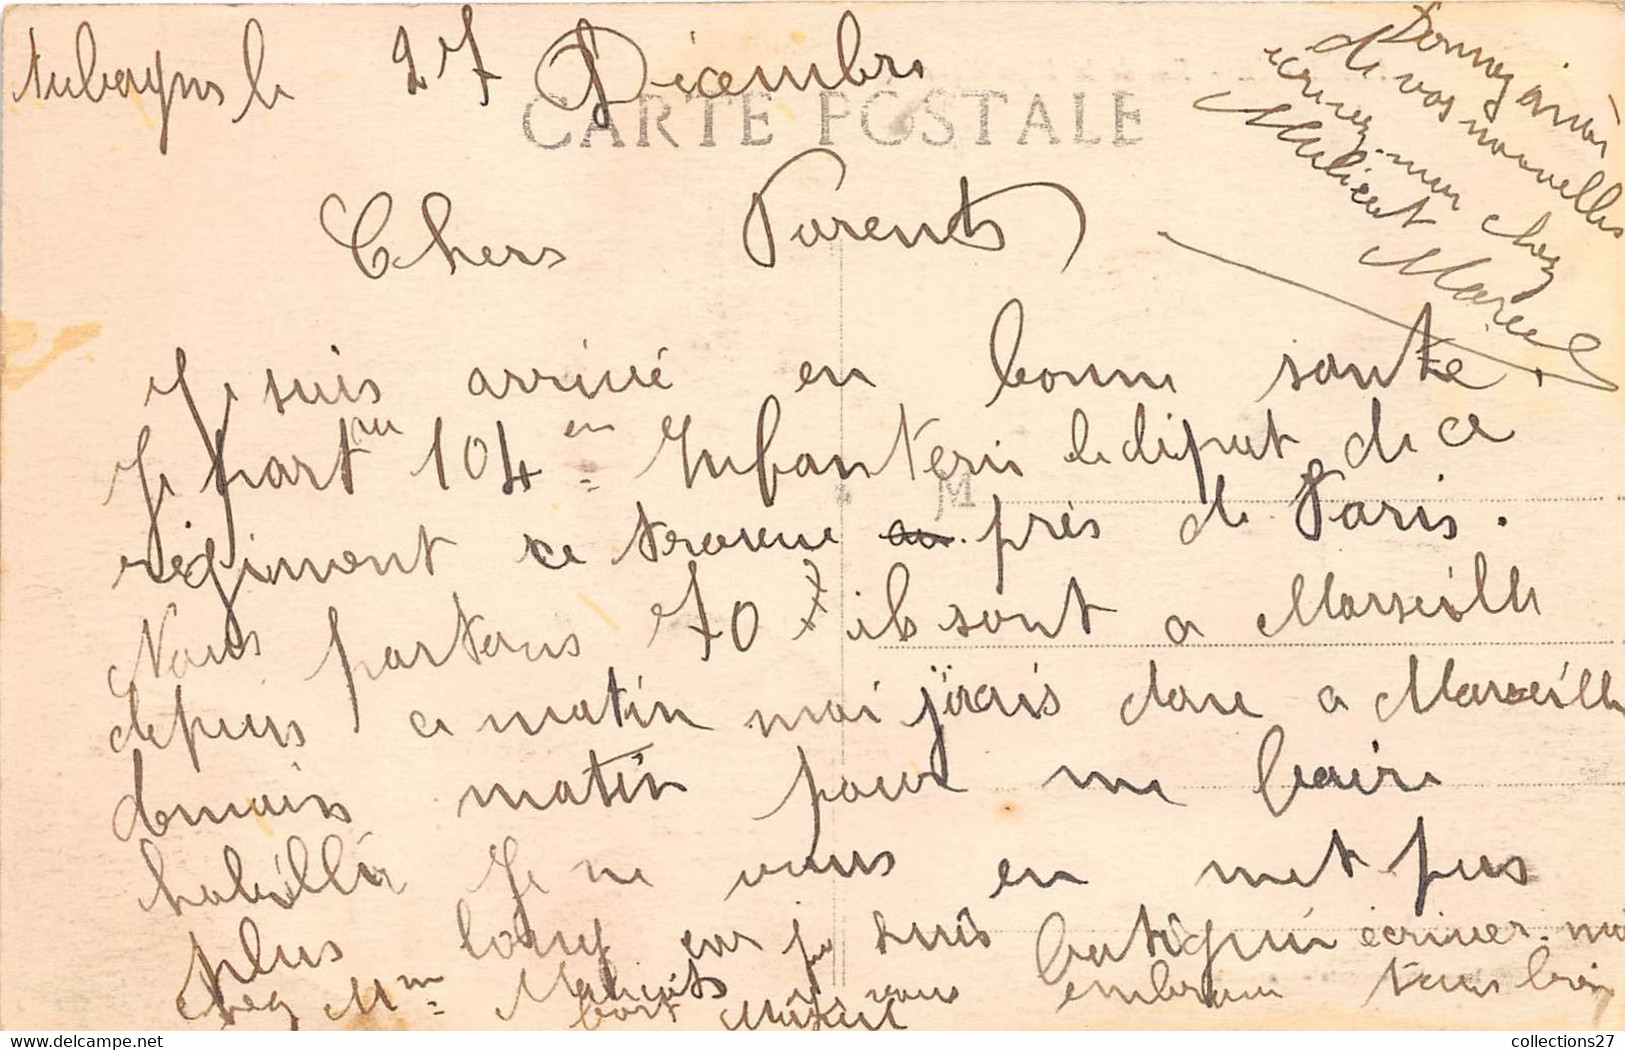 Aubagne le 27 Décembre
CARTE POSTALE
Donnez
de vos nouvelles
écrivez-men chez
Malicut
Marcel
Chers Parents
Je suis arrivé en bonne santé.
Je part au 104 em Infanterie le déput de ce
régiment ce trouve près de Paris.
Nous partons 70 ils sont a Marseille
depuis ce matin moi j'irais donc a Marseille
demain matin pour me faire
habillér Je ne vous en met pas
plus long car je suis fatigué écriver-moi
chez Mme je vous embrasse tous bien
fort Marcel
M
collections27